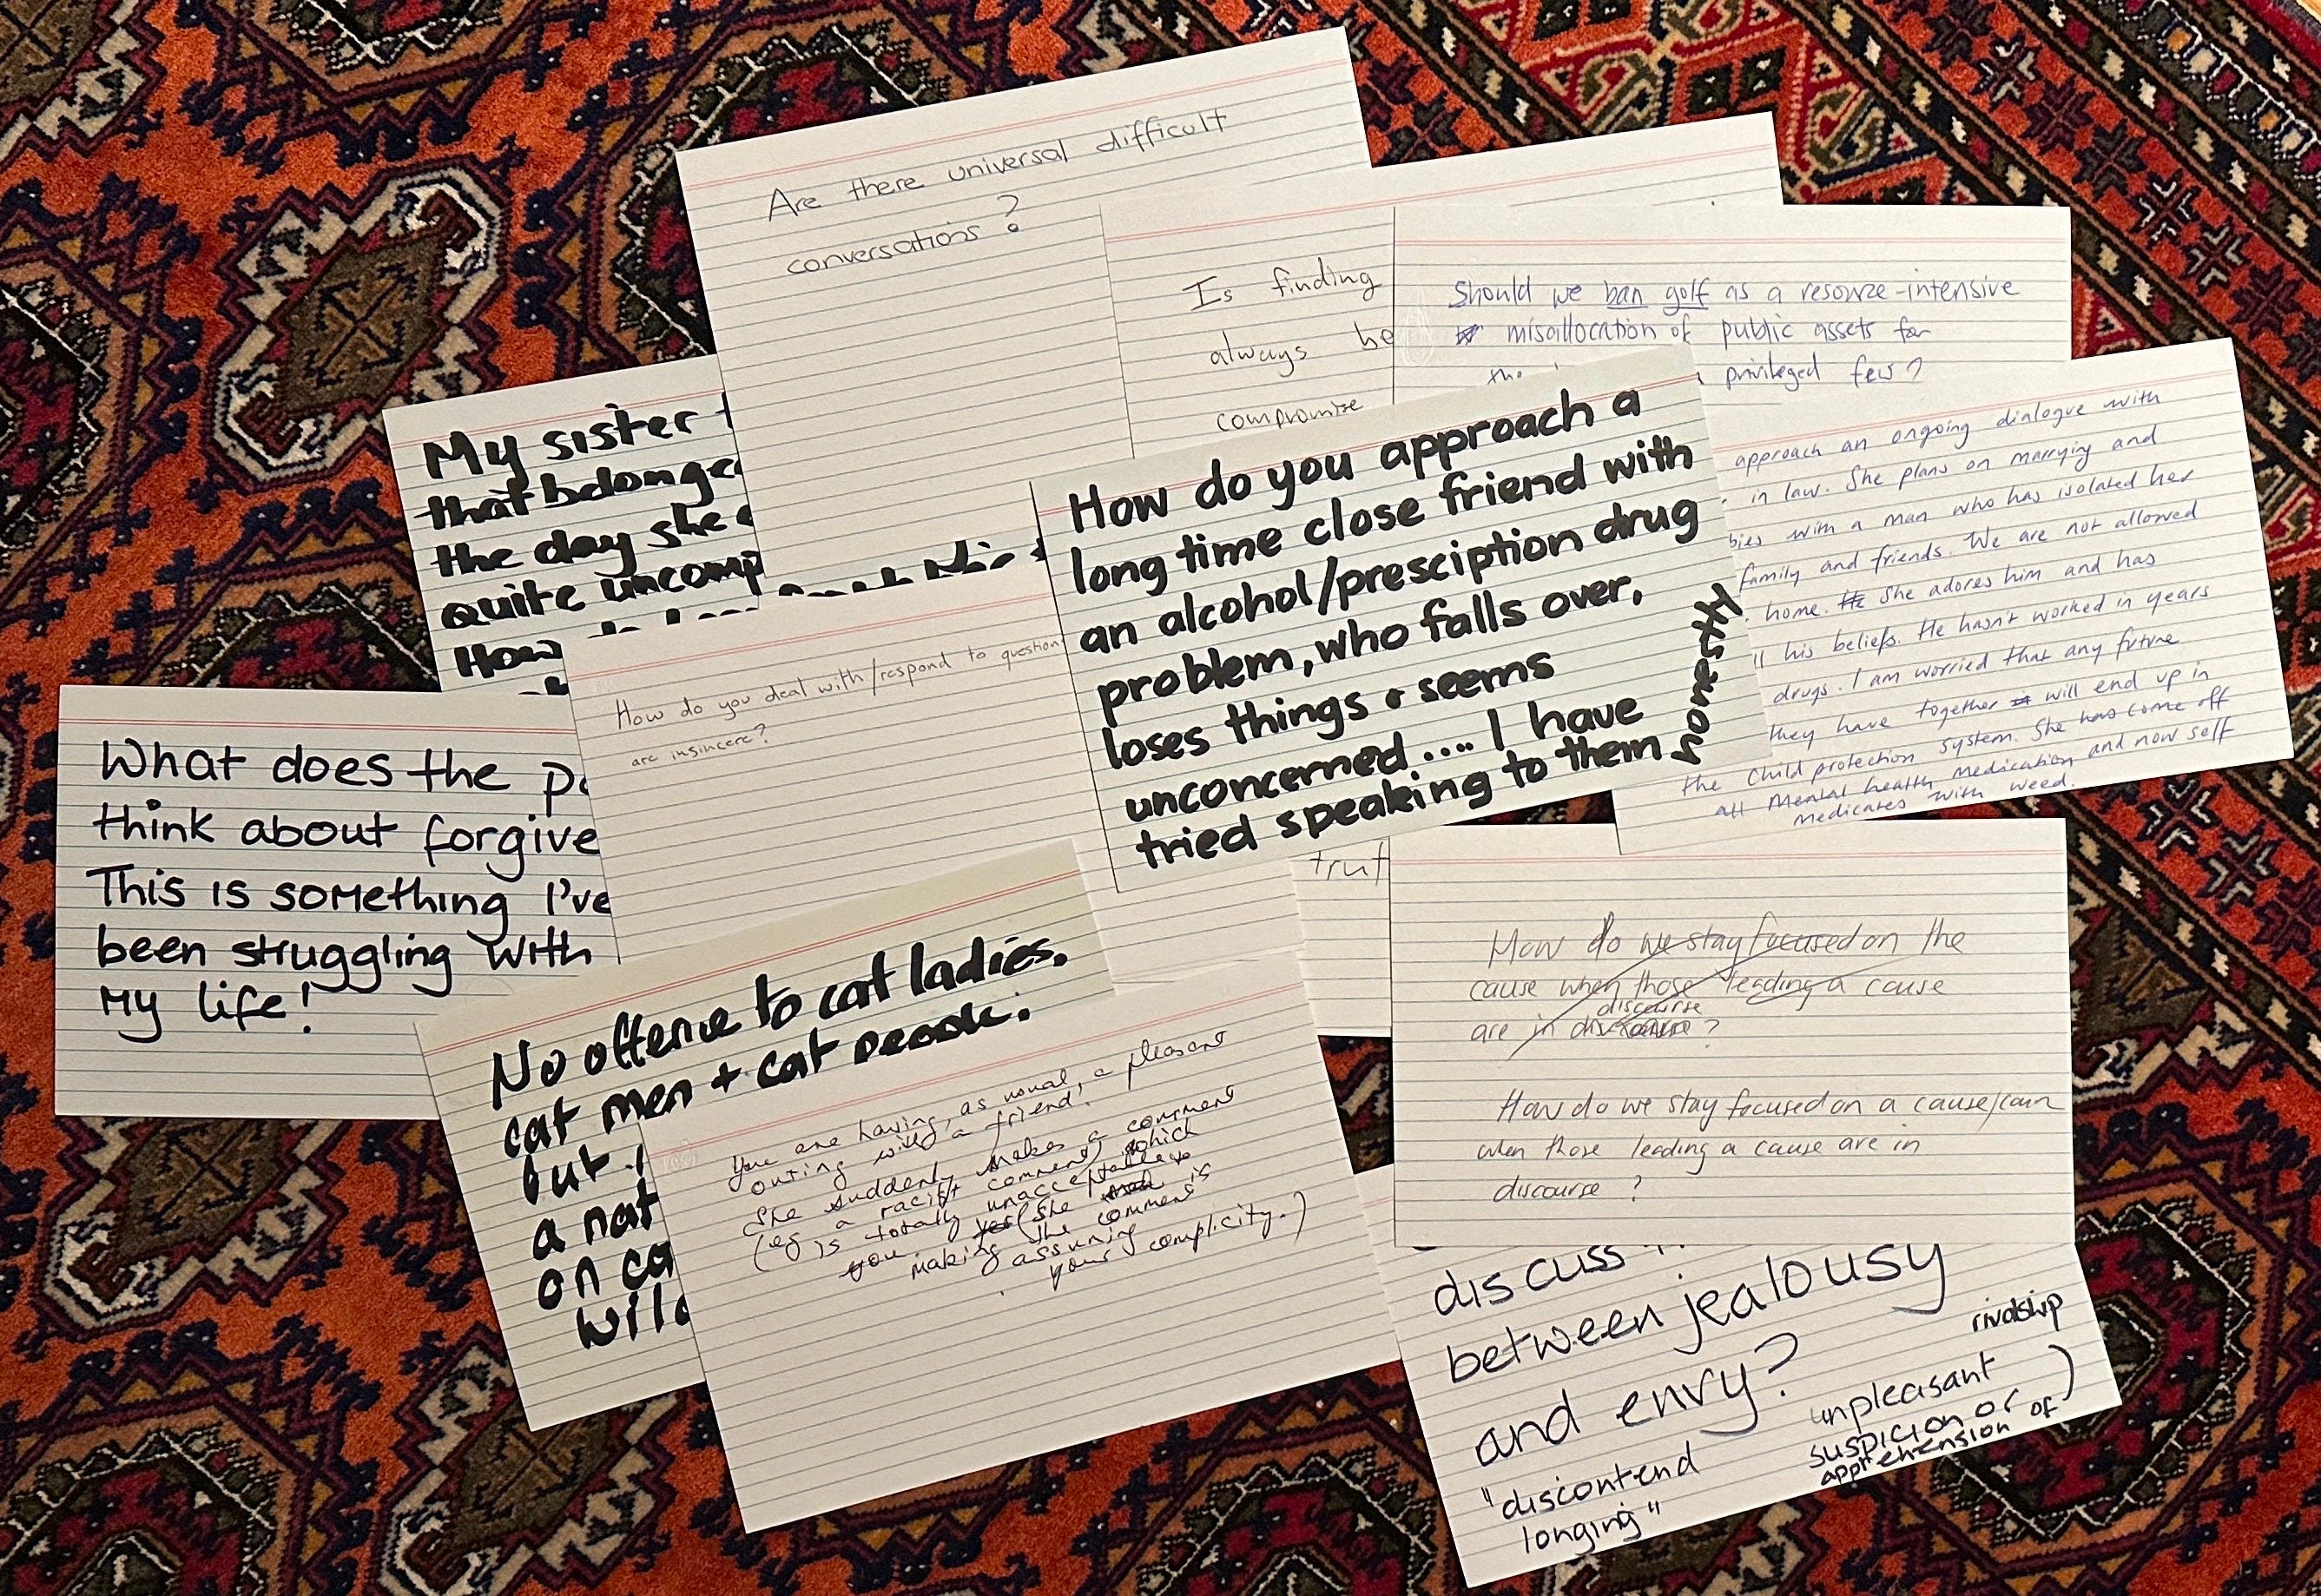 Are there universal difficult
conversations?
Is finding
always be
compromise
Should we ban golf as a resource-intensive
misallocation of public assets for
privileged few?
My sister
that belonged
the day she
quite uncomp
How
How do you approach a
long time close friend with
an alcohol/presciption drug
problem, who falls over,
loses things & seems
unconcerned.... I have
tried speaking to them
approach an ongoing dialogue with
in law. She plans on marrying and
bies with a man who has isolated her
family and friends. We are not allowed
home. He She adores him and has
his beliefs. He hasn't worked in years
drugs. I am worried that any future
they have together will end up in
the child protection system. She has come off
all mental health medication and now self
medicates with weed.
How do you deal with/respond to question
are insincere?
What does the pa
think about forgive
This is something I've
been struggling with
My life!
trut
How do we stay focused on the
cause when those leading a cause
discourse
are in discourse?
How do we stay focused on a cause/caus
when those leading a cause are in
discourse?
No offence to cat ladies,
cat men + cat people.
but
a nat
on ca
wild
You are having, as usual, a pleasant
outing with a friend.
She suddenly makes a comment
(eg a racist comment) which
is totally unacceptable to
you yes (she is
making the comment
assuming
your complicity.)
discuss
between jealousy
and envy?
rivalship
unpleasant
suspicion or
apprehension of)
"discontend
longing"